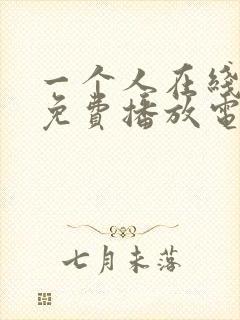 一个人在线
免费播放电
七月未落